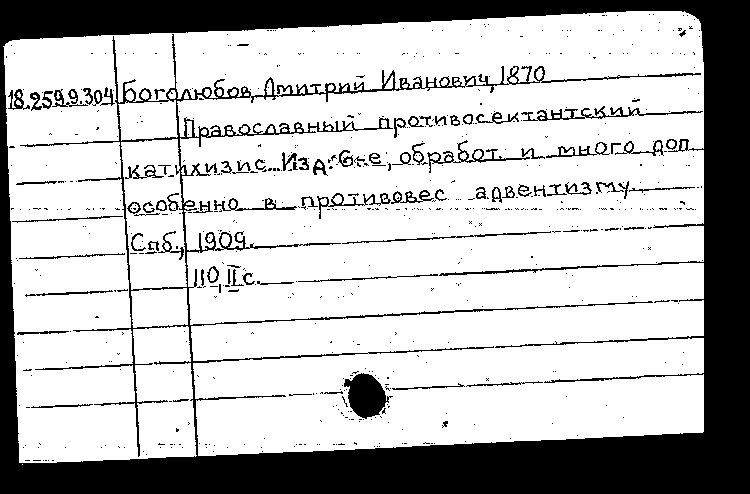 18.259.9.304 Боголюбов, Дмитрий Иванович, 1870
Православный противосектантский
катихизис. Изд. 6-е, обработ. и много доп.
особенно в противовес адвентизму.
Спб., 1909.
110, II с.